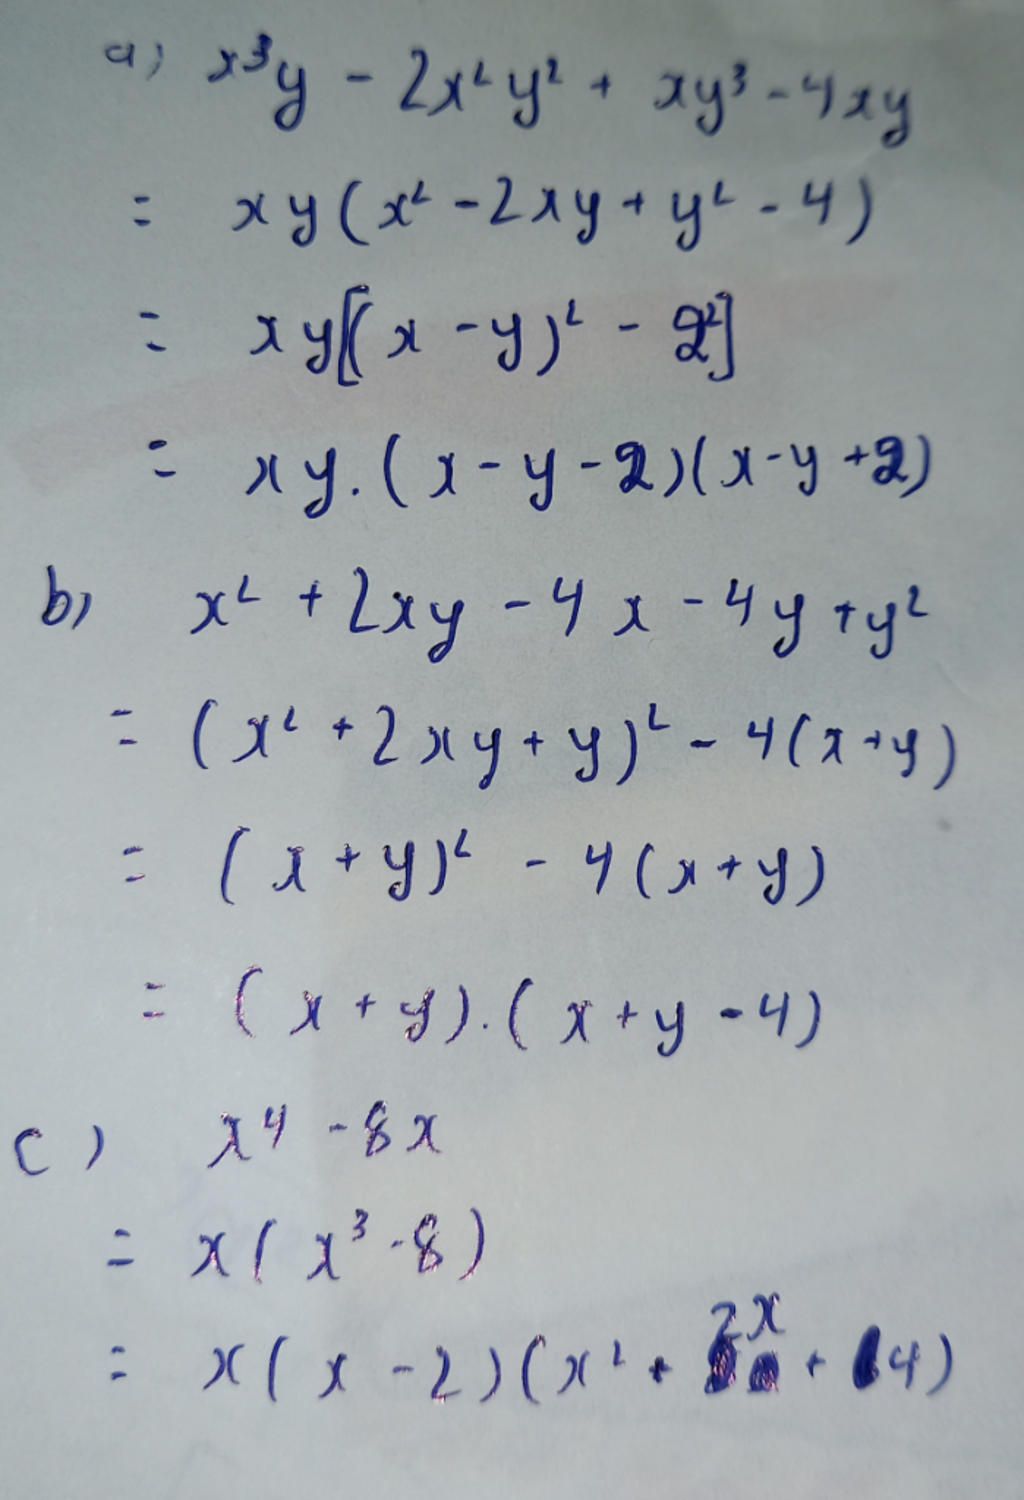 a) x³y - 2x²y² + xy³ - 4xy
= xy(x² - 2xy + y² - 4)
= xy[(x - y)² - 2²]
= xy.(x - y - 2)(x - y + 2)
b) x² + 2xy - 4x - 4y + y²
= (x² + 2xy + y)² - 4(x + y)
= (x + y)² - 4(x + y)
= (x + y).(x + y - 4)
c) x⁴ - 8x
= x(x³ - 8)
= x(x - 2)(x² + 2x + 4)